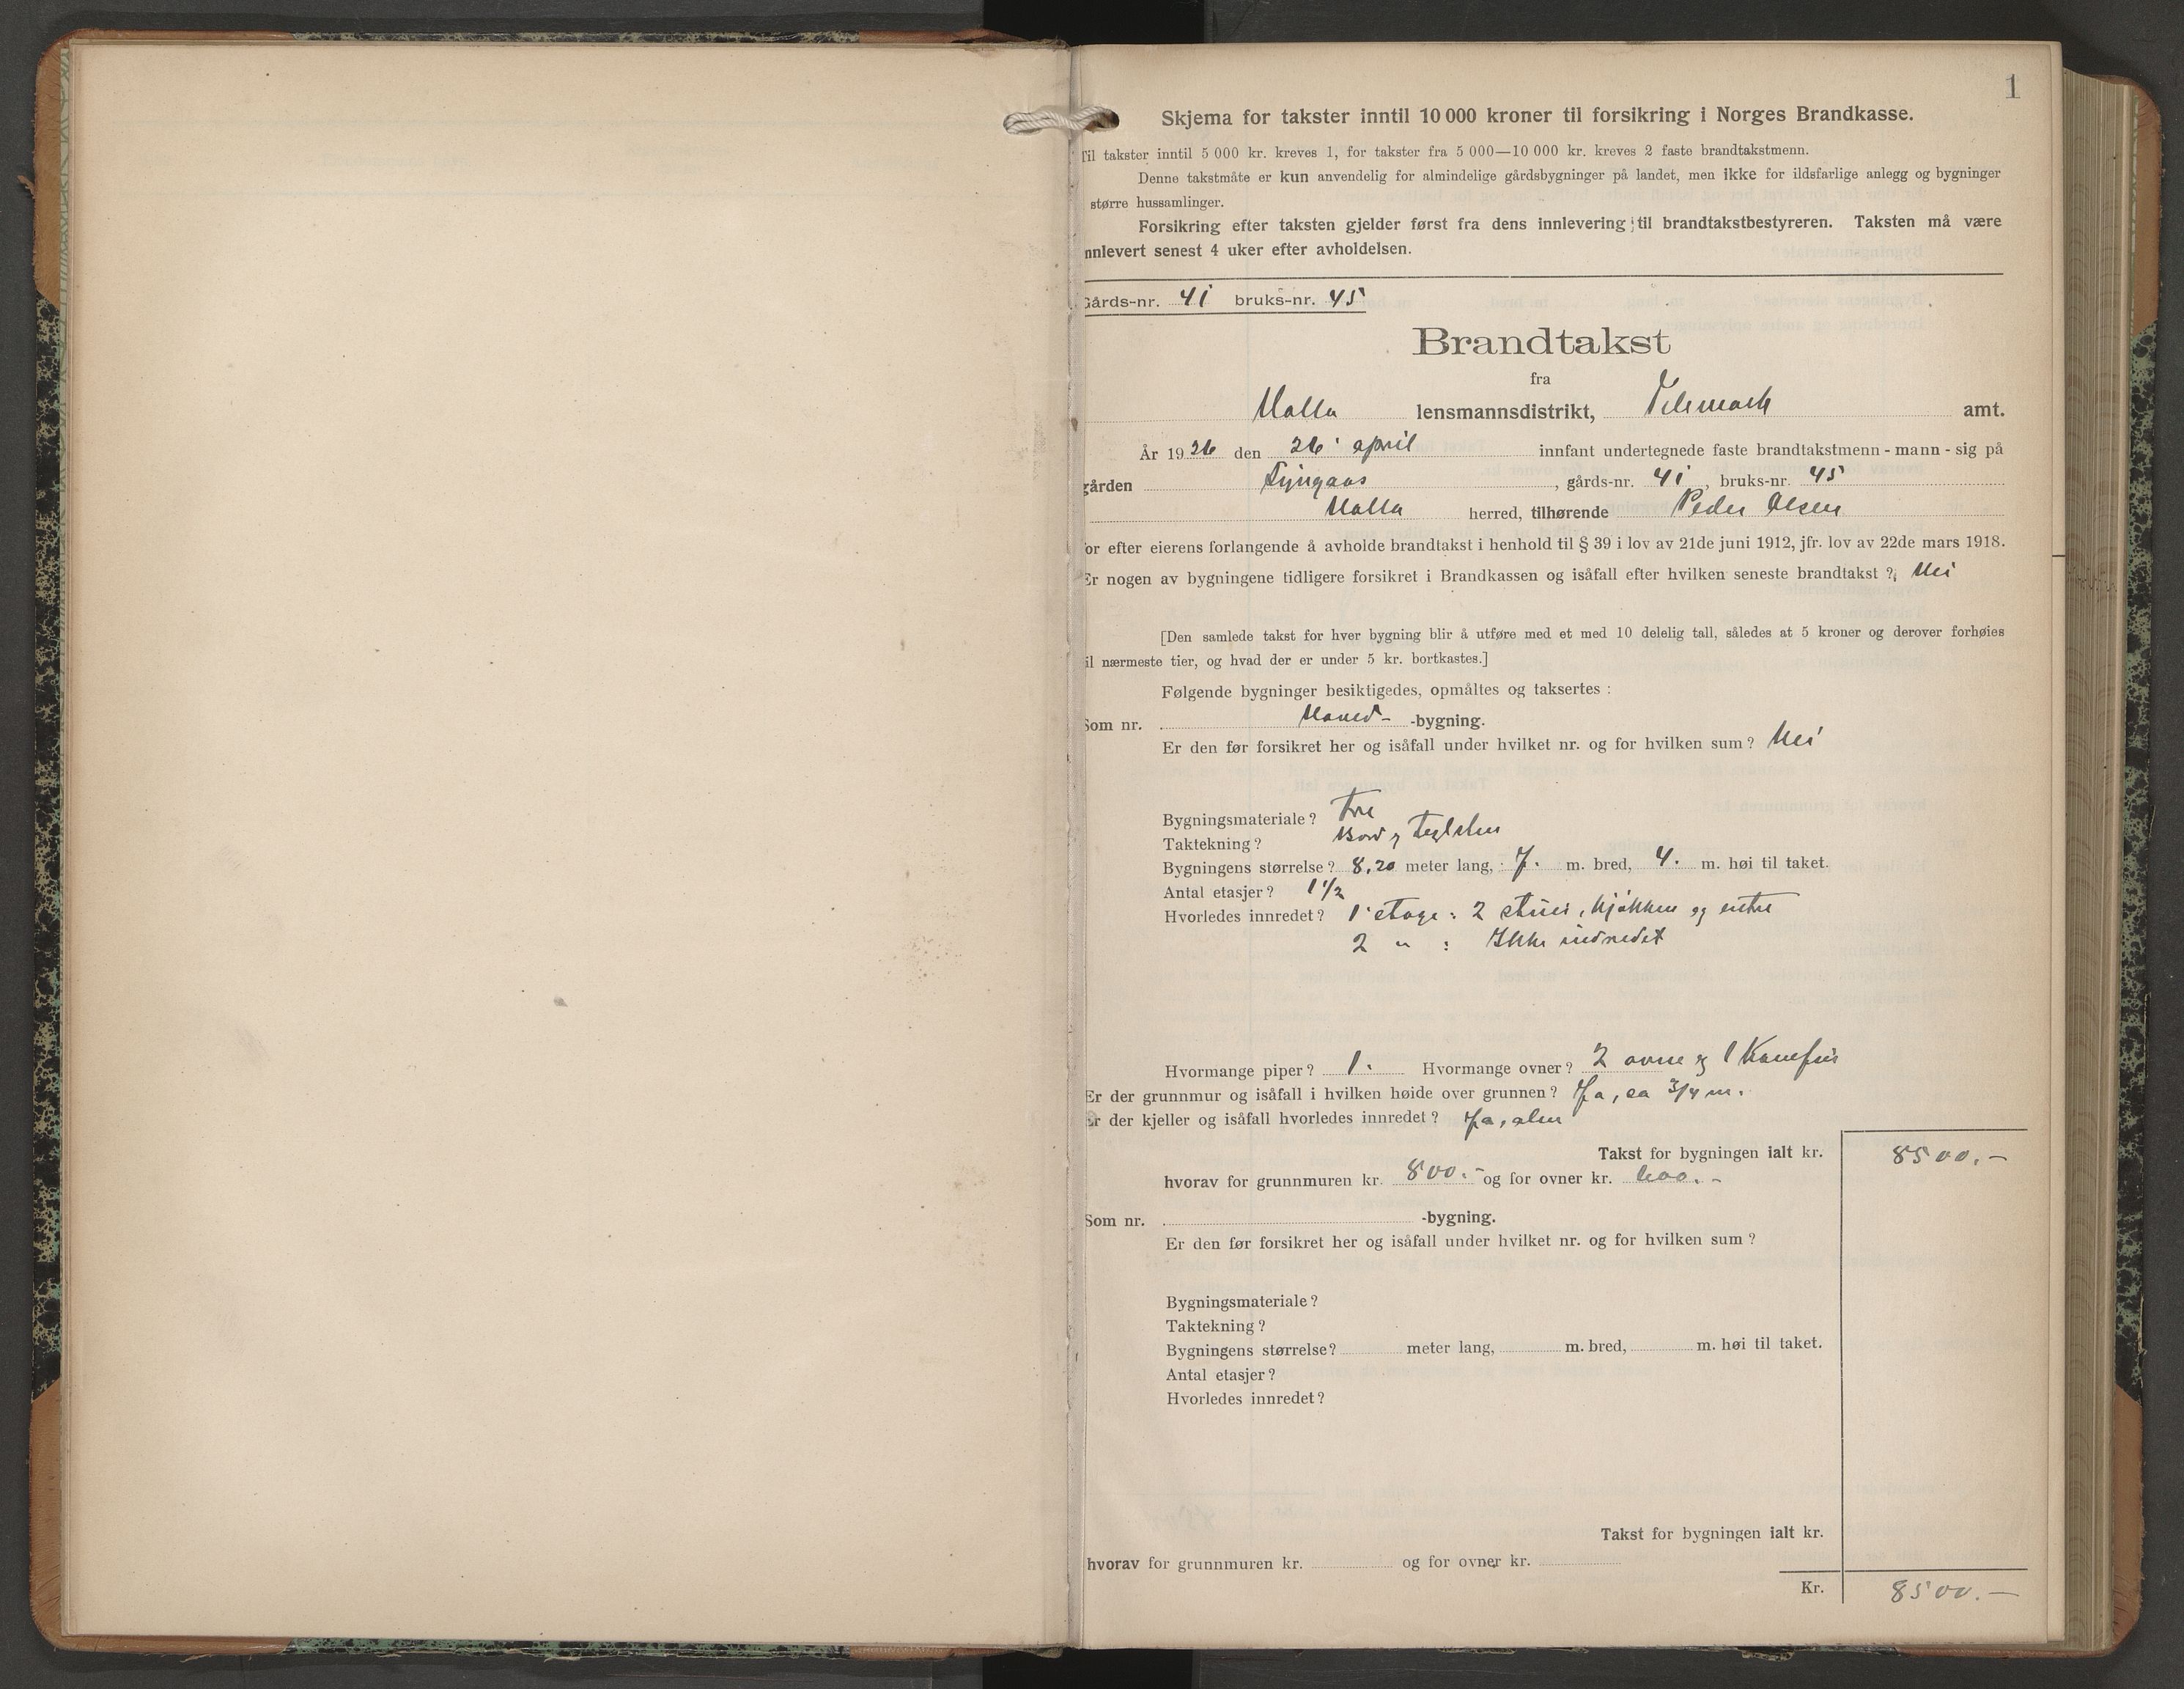 1
Skjema for takster inntil 10 000 kroner til forsikring i Norges Brandkasse.
Til takster inntil 5 000 kr. kreves 1, for takster fra 5 000—10 000 kr. kreves 2 faste brandtakstmenn.
Denne takstmåte er kun anvendelig for almindelige gårdsbygninger på landet, men ikke for ildsfarlige anlegg og bygninger
større hussamlinger.
Forsikring efter taksten gjelder først fra dens innlevering til brandtakstbestyreren. Taksten må være
nnlevert senest 4 uker efter avholdelsen.
Gårds-nr. 41 bruks-nr. 45
Brandtakst
fra
Holla lensmannsdistrikt, Telemark amt.
År 1926 den 26' april innfant undertegnede faste brandtakstmenn - mann - sig på
gården Lyngaas, gårds-nr. 41, bruks-nr. 45
Holla herred, tilhørende Peder Olsen
for efter eierens forlangende å avholde brandtakst i henhold til § 39 i lov av 21de juni 1912, jfr. lov av 22de mars 1918.
Er nogen av bygningene tidligere forsikret i Brandkassen og isåfall efter hvilken seneste brandtakst ? Nei
[Den samlede takst for hver bygning blir å utføre med et med 10 delelig tall, således at 5 kroner og derover forhøies
il nærmeste tier, og hvad der er under 5 kr. bortkastes.]
Følgende bygninger besiktigedes, opmåltes og taksertes :
Som nr. Hoved- -bygning.
Er den før forsikret her og isåfall under hvilket nr. og for hvilken sum ? Nei
Bygningsmateriale ? Tre
Taktekning ? Bord og Teglsten
Bygningens størrelse ? 8,20 meter lang, 7. m. bred, 4. m. høi til taket.
Antal etasjer ? 1 1/2
Hvorledes innredet ? 1' etage : 2 stuer, kjøkken og entre
2 " : Ikke indredet
Hvormange piper ? 1. Hvormange ovner ? 2 ovne og 1 Komfur
Er der grunnmur og isåfall i hvilken høide over grunnen ? Ja, ca 3/4 m.
Er der kjeller og isåfall hvorledes innredet ? Ja,
Takst for bygningen ialt kr. 8500.-
hvorav for grunnmuren kr. 800.- og for ovner kr. 600.-
Som nr. -bygning.
Er den før forsikret her og isåfall under hvilket nr. og for hvilken sum ?
Bygningsmateriale ?
Taktekning ?
Bygningens størrelse ? meter lang, m. bred, m. høi til taket.
Antal etasjer ?
Hvorledes innredet ?
Takst for bygningen ialt kr.
hvorav for grunnmuren kr. og for ovner kr.
Kr. 8500.-